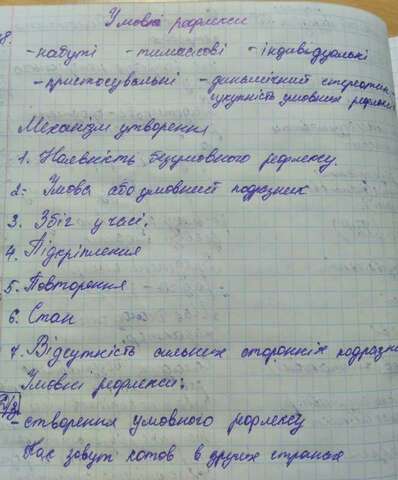 Умовні рефлекси
8.
- набуті - тимчасові - індивідуальні
- пристосувальні - динамічний стереотип
сукупність умовних рефлексів
Механізм утворення
1. Наявність безумовного рефлексу.
2. Умова або умовний подразник
3. Збіг у часі;
4. Підкріплення
5. Повторення
6. Стан
7. Відсутність сильних сторонніх подразн
Умовні рефлекси:
Д/з
- створення умовного рефлексу
Как зовут котов в других странах